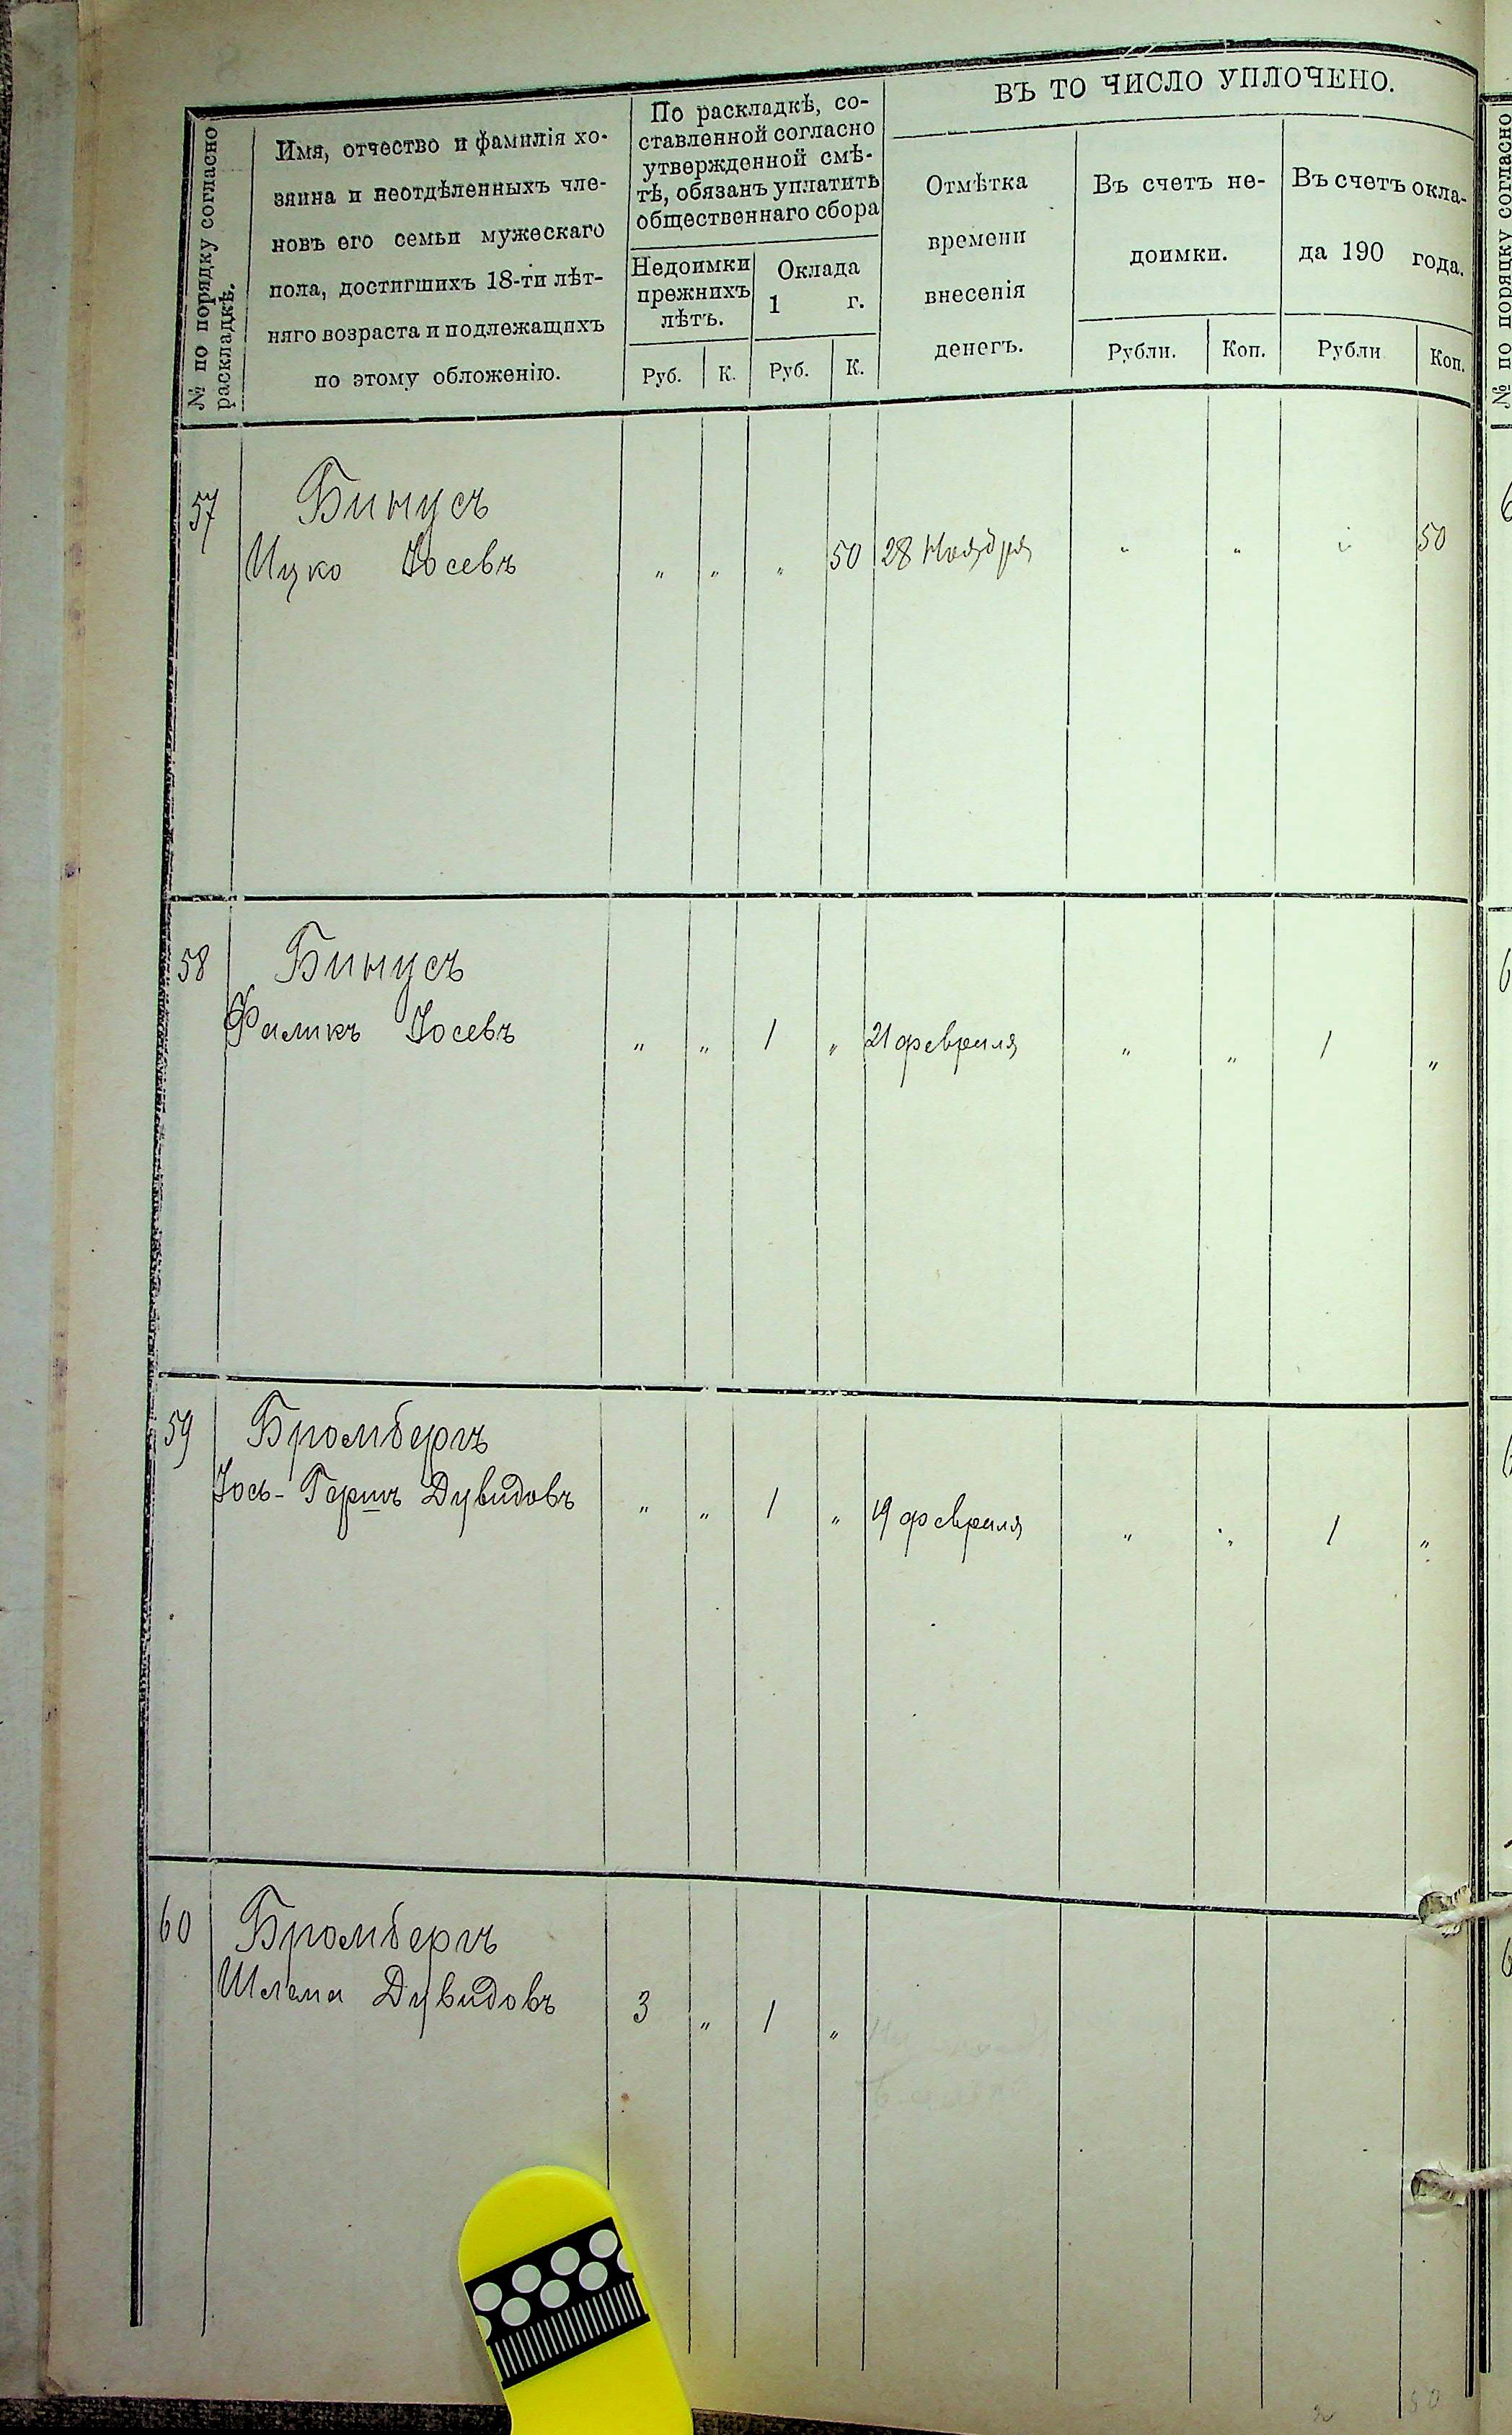 ВЪ ТО ЧИСЛО УПЛОЧЕНО.
№ по порядку согласно
раскладкѣ.
Имя, отчество и фамилія хо-
зяина и неотдѣленныхъ чле-
новъ его семьи мужескаго
пола, достигшихъ 18-ти лѣт-
няго возраста и подлежащихъ
по этому обложенію.
По раскладкѣ, со-
ставленной согласно
утвержденной смѣ-
тѣ, обязанъ уплатить
общественнаго сбора
Недоимки
прежнихъ
лѣтъ.
Оклада
1 г.
Руб. К. Руб. К.
Отмѣтка
времени
внесенія
денегъ.
Въ счетъ не-
доимки.
Въ счетъ окла-
да 190 года.
Рубли. Коп. Рубли Коп.
№ по порядку согласно
57 Бинусъ
Ицко Іосевъ " " " 50 28 Ноября " " " 50
58 Бинусъ
Фаликъ Іосевъ " " 1 " 21 февраля " " 1 "
59 Бромбергъ
Іось-Гершъ Дувидовъ " " 1 " 19 февраля " " 1 "
60 Бромбергъ
Шлема Дувидовъ 3 " 1 "